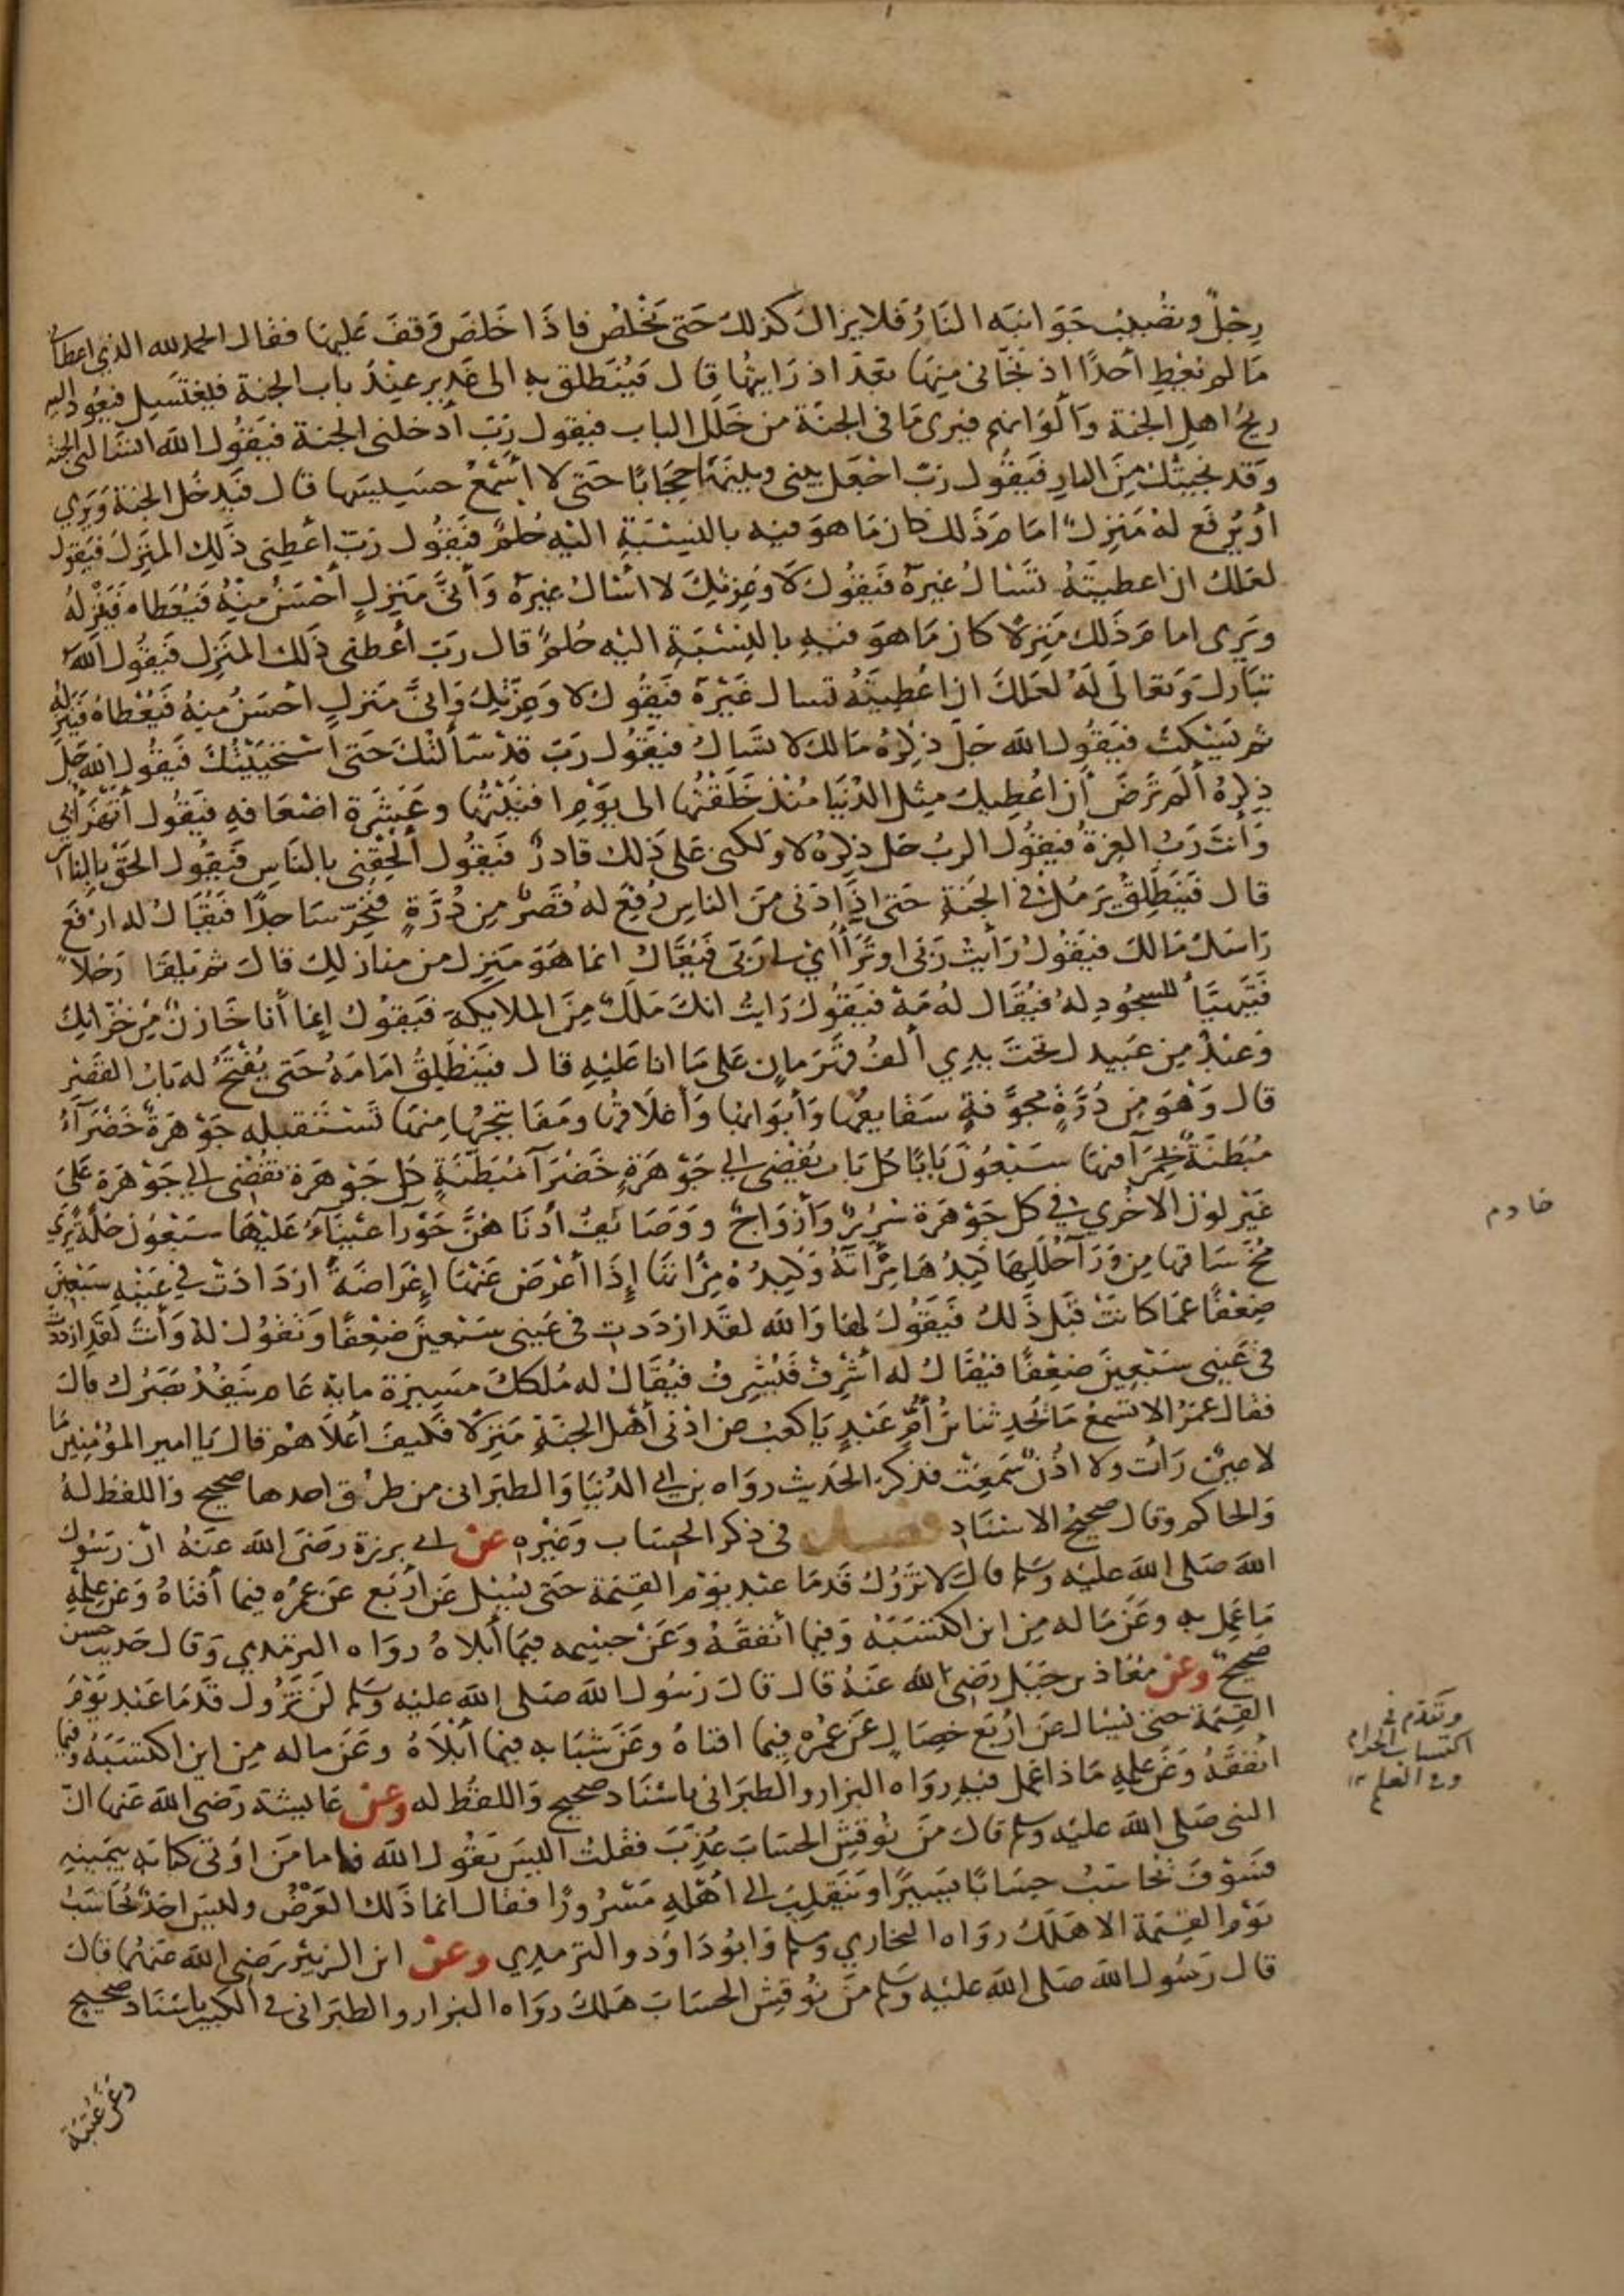 رجل وتصيب جوانبه النار فلا يزال كذلك حتى يخلص فاذا خلص وقف عليها فقال الحمد لله الذي اعطاني
ما لم يعط أحدًا اذ نجاني منها بعد اذ رايتها قال فينطلق به الى غدير عند باب الجنة فيغتسل فيعود اليه
ريح اهل الجنة وألوانهم فيرى ما في الجنة من خلل الباب فيقول رب أدخلني الجنة فيقول الله اتسأل الجنة
وقد نجيتك من النار فيقول رب اجعل بيني وبينها حجابا حتى لا أسمع حسيسها قال فيدخل الجنة ويرى
أو يرفع له منزل امام ذلك كان ما هو فيه بالنسبة اليه حلم فيقول رب اعطني ذلك المنزل فيقول
لعلك ان اعطيته تسأل غيره فيقول لا وعزتك لا اسال غيره وأنى منزل أحسن منه فيعطاه فينزله
ويرى امام ذلك منزلا كان ما هو فيه بالنسبة اليه حلم قال رب أعطني ذلك المنزل فيقول الله
تبارك وتعالى له لعلك ان اعطيته تسال غيره فيقول لا وعزتك وانى منزل احسن منه فيعطاه فينزله
ثم يسكت فيقول الله جل ذكره مالك لا تسال فيقول رب قد سألتك حتى استحييتك فيقول الله جل
ذكره ألم ترض أن اعطيك مثل الدنيا منذ خلقتها الى يوم افنيتها وعشرة اضعافه فيقول أتهزأ بي
وأنت رب العزة فيقول الرب جل ذكره لا ولكني على ذلك قادر فيقول ألحقني بالناس فيقول الحق بالناس
قال فينطلق يرمل في الجنة حتى اذا دنى من الناس رفع له قصر من درة فيخر ساجدا فيقال له ارفع
راسك مالك فيقول رأيت ربي او تراأى لي ربي فيقال انما هو منزل من منازلك قال ثم يلقا رجلا
فيتهيأ للسجود له فيقال له مه فيقول رايت انك ملك من الملايكة فيقول إنما أنا خازن من خزانك
وعبد من عبيدك تحت يدي ألف قهرمان على ما انا عليه قال فينطلق امامه حتى يفتح له باب القصر
قال وهو من درة مجوفة سقايفها وأبوابها وأغلاقها ومفاتيحها منها تستقبله جوهرة خضرآء
مبطنة بحمرآ فيها سبعون بابا كل باب يفضي الى جوهرة خضرآ مبطنة كل جوهرة تفضي الى جوهرة على
غير لون الاخرى في كل جوهرة سرر وأزواج ووصائف أدناهن حورآ عيناء عليها سبعون حلة يرى
مخ ساقها من ورآ حللها كبدها مرآته وكبده مرآتها إذا أعرض عنها إعراضة ازدادت في عينه سبعين
ضعفا عما كانت قبل ذلك فيقول لها والله لقد ازددت في عيني سبعين ضعفا وتقول له وأنت لقد ازددت
في عيني سبعين ضعفا فيقال له أشرف فيشرف فيقال له ملكك مسيرة ماية عام ينفذ بصرك قال
فقال عمر الا تسمع ما يحدثنا بن أم عبد يا كعب عن ادنى أهل الجنة منزلا فكيف أعلاهم قال يا امير المؤمنين ما
لا عين رأت ولا اذن سمعت فذكر الحديث رواه بن ابي الدنيا والطبراني من طرق احدها صحيح واللفظ له
والحاكم وقال صحيح الاسناد فصل في ذكر الحساب وغيره عن ابي برزة رضي الله عنه ان رسول
الله صلى الله عليه وسلم قال لا تزول قدما عبد يوم القيمة حتى يسيل عن أربع عن عمره فيما أفناه وعن علمه
ما عمل به وعن ماله من اين اكتسبه وفيما أنفقه وعن جسمه فيما أبلاه رواه الترمذي وقال حديث حسن
صحيح وعن معاذ بن جبل رضي الله عنه قال قال رسول الله صلى الله عليه وسلم لن تزول قدما عبد يوم
القيمة حتى يسال عن اربع خصال عن عمره فيما افناه وعن شبابه فيما أبلاه وعن ماله من اين اكتسبه وفيما
أنفقه وعن علمه ماذا عمل فيه رواه البزار والطبراني باسناد صحيح واللفظ له وعن عايشة رضي الله عنها ان
النبي صلى الله عليه وسلم قال من نوقش الحساب عذب فقلت اليس يقول الله فاما من اوتي كتابه بيمينه
فسوف يحاسب حسابا يسيرا وينقلب الى أهله مسرورا فقال انما ذلك العرض وليس احد يحاسب
يوم القيمة الا هلك رواه البخاري ومسلم وابو داود والترمذي وعن ابن الزبير رضي الله عنهما قال
قال رسول الله صلى الله عليه وسلم من نوقش الحساب هلك رواه البزار والطبراني في الكبير باسناد صحيح
وعن عتبة
خادم
وتقدم في
اكتساب الحرام
وفي العلم ١٢